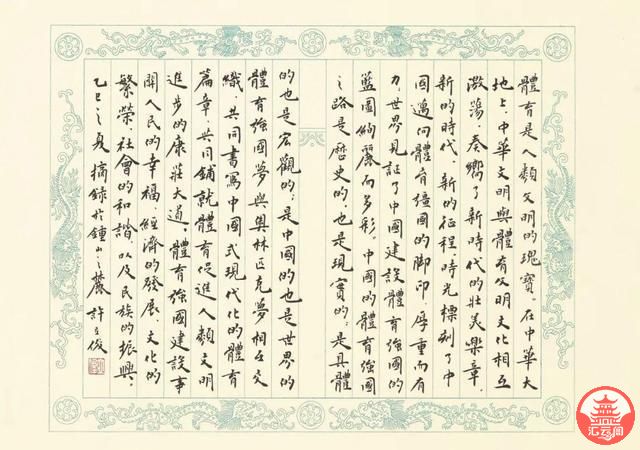 體育是人類文明的瑰寶。在中華大
地上,中華文明與體育文明文化相互
激蕩,奏響了新時代的壯美樂章。
新的時代,新的征程,時光標刻了中
國邁向體育强國的脚印,厚重而有
力,世界見証了中國建設體育強國的
藍圖絢麗而多彩。中國的體育強國
之路是歷史的,也是現實的;是具體
的也是宏觀的;是中國的也是世界的
體育強國夢與奥林匹克夢相互交
織,共同書寫中國式現代化的體育
篇章,共同鋪就體育促進人類文明
進步的康莊大道。體育強國建設事
關人民的幸福、經濟的發展、文化的
繁榮、社會的和諧、以及民族的振興。
乙巳之夏摘録於鍾山之麓 許立俊
汇云阁